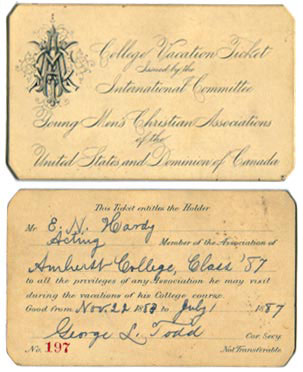 College Vacation Ticket
Issued by the
International Committee
Young Men's Christian Associations
of the
United States and Dominion of Canada
This Ticket entitles the Holder
Mr E. N. Hardy
Acting Member of the Association of
Amherst College, Class '87
to all the privileges of any Association he may visit
during the vacations of his College course.
Good from Nov. 22 1883 to July 1 1887
George L. Todd Cor. Secy.
No. 197 Not Transferable